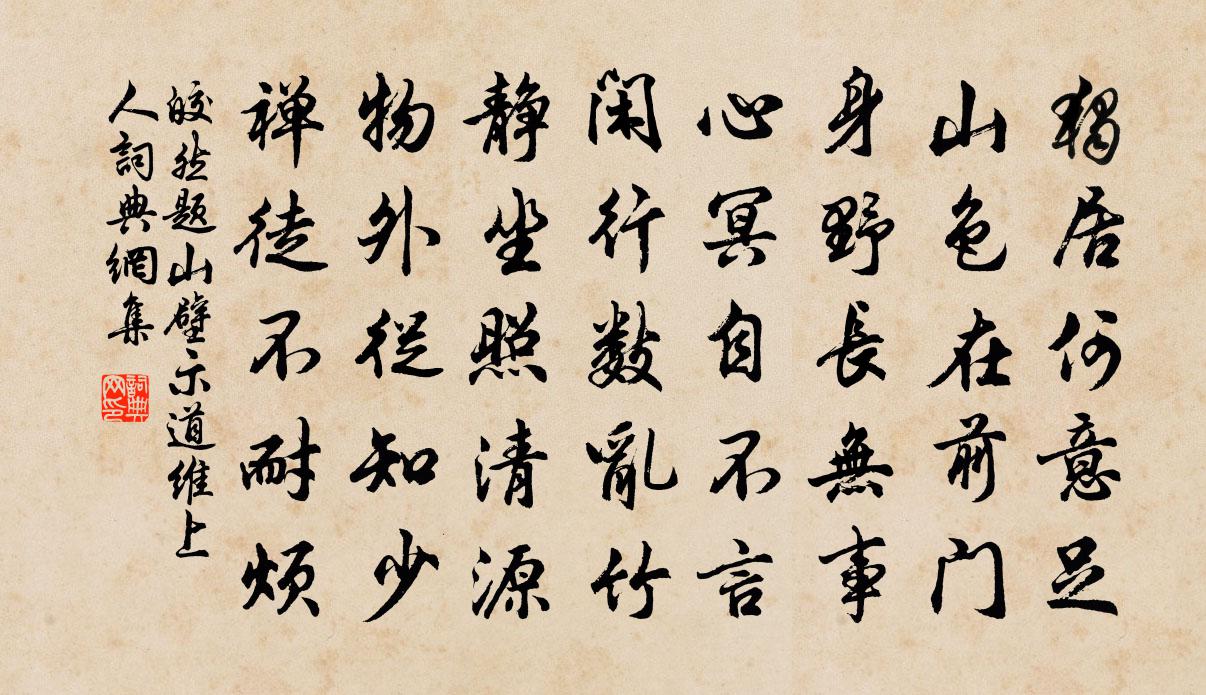 獨居何意足
山色在前门
身野長無事
心冥自不言
闲行數亂竹
静坐照清源
物外從知少
禅徒不耐烦
皎然题山壁示道维上
人詞典網集
詞典
网印